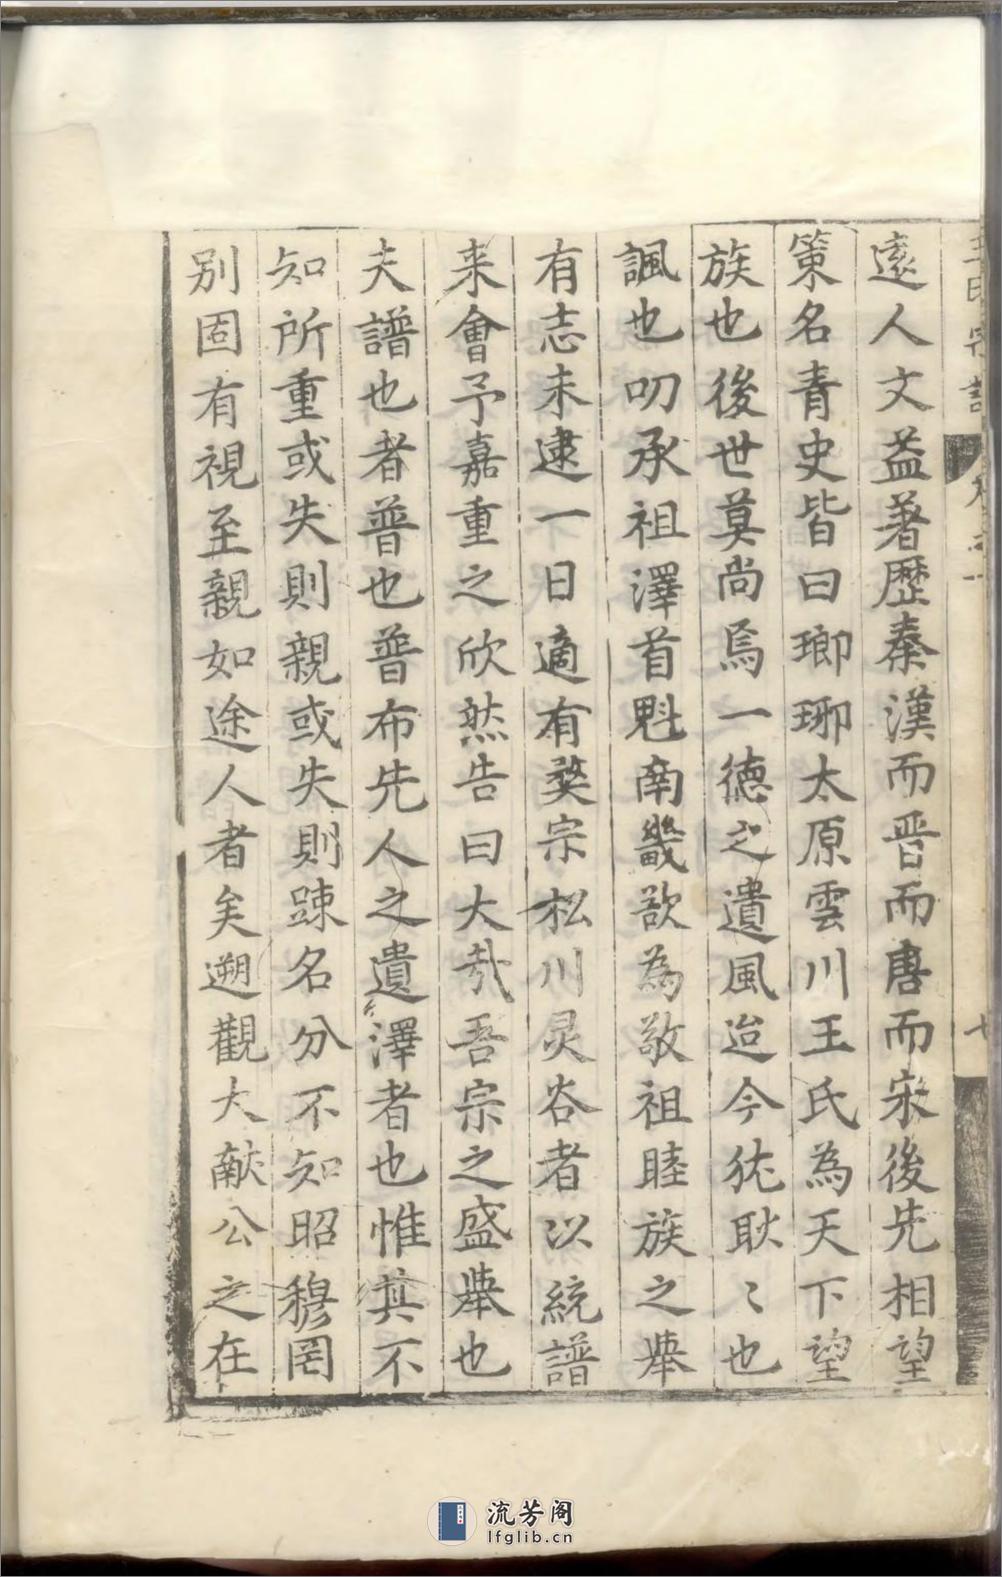 遠人文益著歴秦漢而晋而唐而宋後先相望
策名青史皆曰瑯琊太原雲川王氏為天下望
族也後世莫尚焉一德之遺風迨今犹耿〻也
諷也叨承祖澤首魁南畿欲為敬祖睦族之舉
有志未逮一日適有婺宗松川灵谷者以統譜
来會予嘉重之欣然告曰大哉吾宗之盛舉也
夫譜也者普也普布先人之遺澤者也惟其不
知所重或失則親或失則踈名分不知昭穆罔
别固有視至親如途人者矣遡觀大献公之在
流芳阁
lfglib.cn